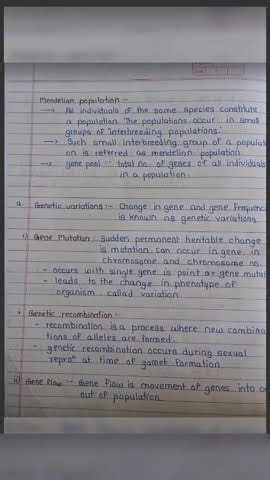 Mendelian population :-
→ All individuals of the same species constitute
a population. The populations occur in small
groups of interbreeding populations.
→ Such small interbreeding group of a populati
on is referred as mendelian population
→ gene pool :- total no. of genes of all individuals
in a population.
a. Genetic variations :- Change in gene and gene frequenc
is known as genetic variations
i) Gene Mutation : Sudden permanent heritable change
is mutation can occur in gene in
chromosome and chromosome no.
- occurs with single gene is point or gene mutat
- leads to the change in phenotype of
organism. called variation.
Genetic recombination :-
- recombination is a process where new combina
tions of alleles are formed.
- genetic recombination occurs during sexual
reproⁿ at time of gamet formation
Gene flow :- Gene flow is movement of genes into or
out of population